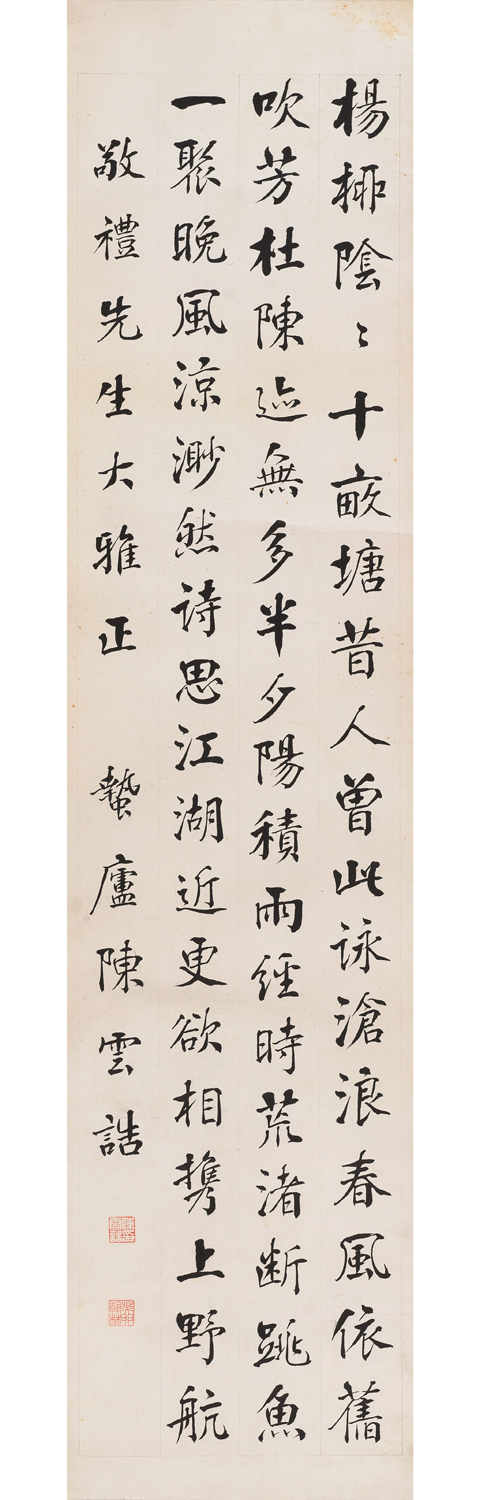 楊柳陰〻十畝塘昔人曾此詠滄浪春風依舊
吹芳杜陳迹無多半夕陽積雨經時荒渚斷跳魚
一聚晚風涼渺然詩思江湖近更欲相攜上野航
敬禮先生大雅正 蟄廬陳雲誥